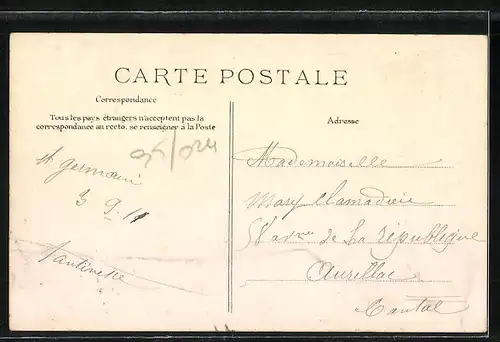 CARTE POSTALE
Correspondance
Tous les pays étrangers n'acceptent pas la
correspondance au recto, se renseigner à la Poste
Adresse
St germain
3 9. 11
Mademoiselle
Mary
de la république
Aurillac
Cantal